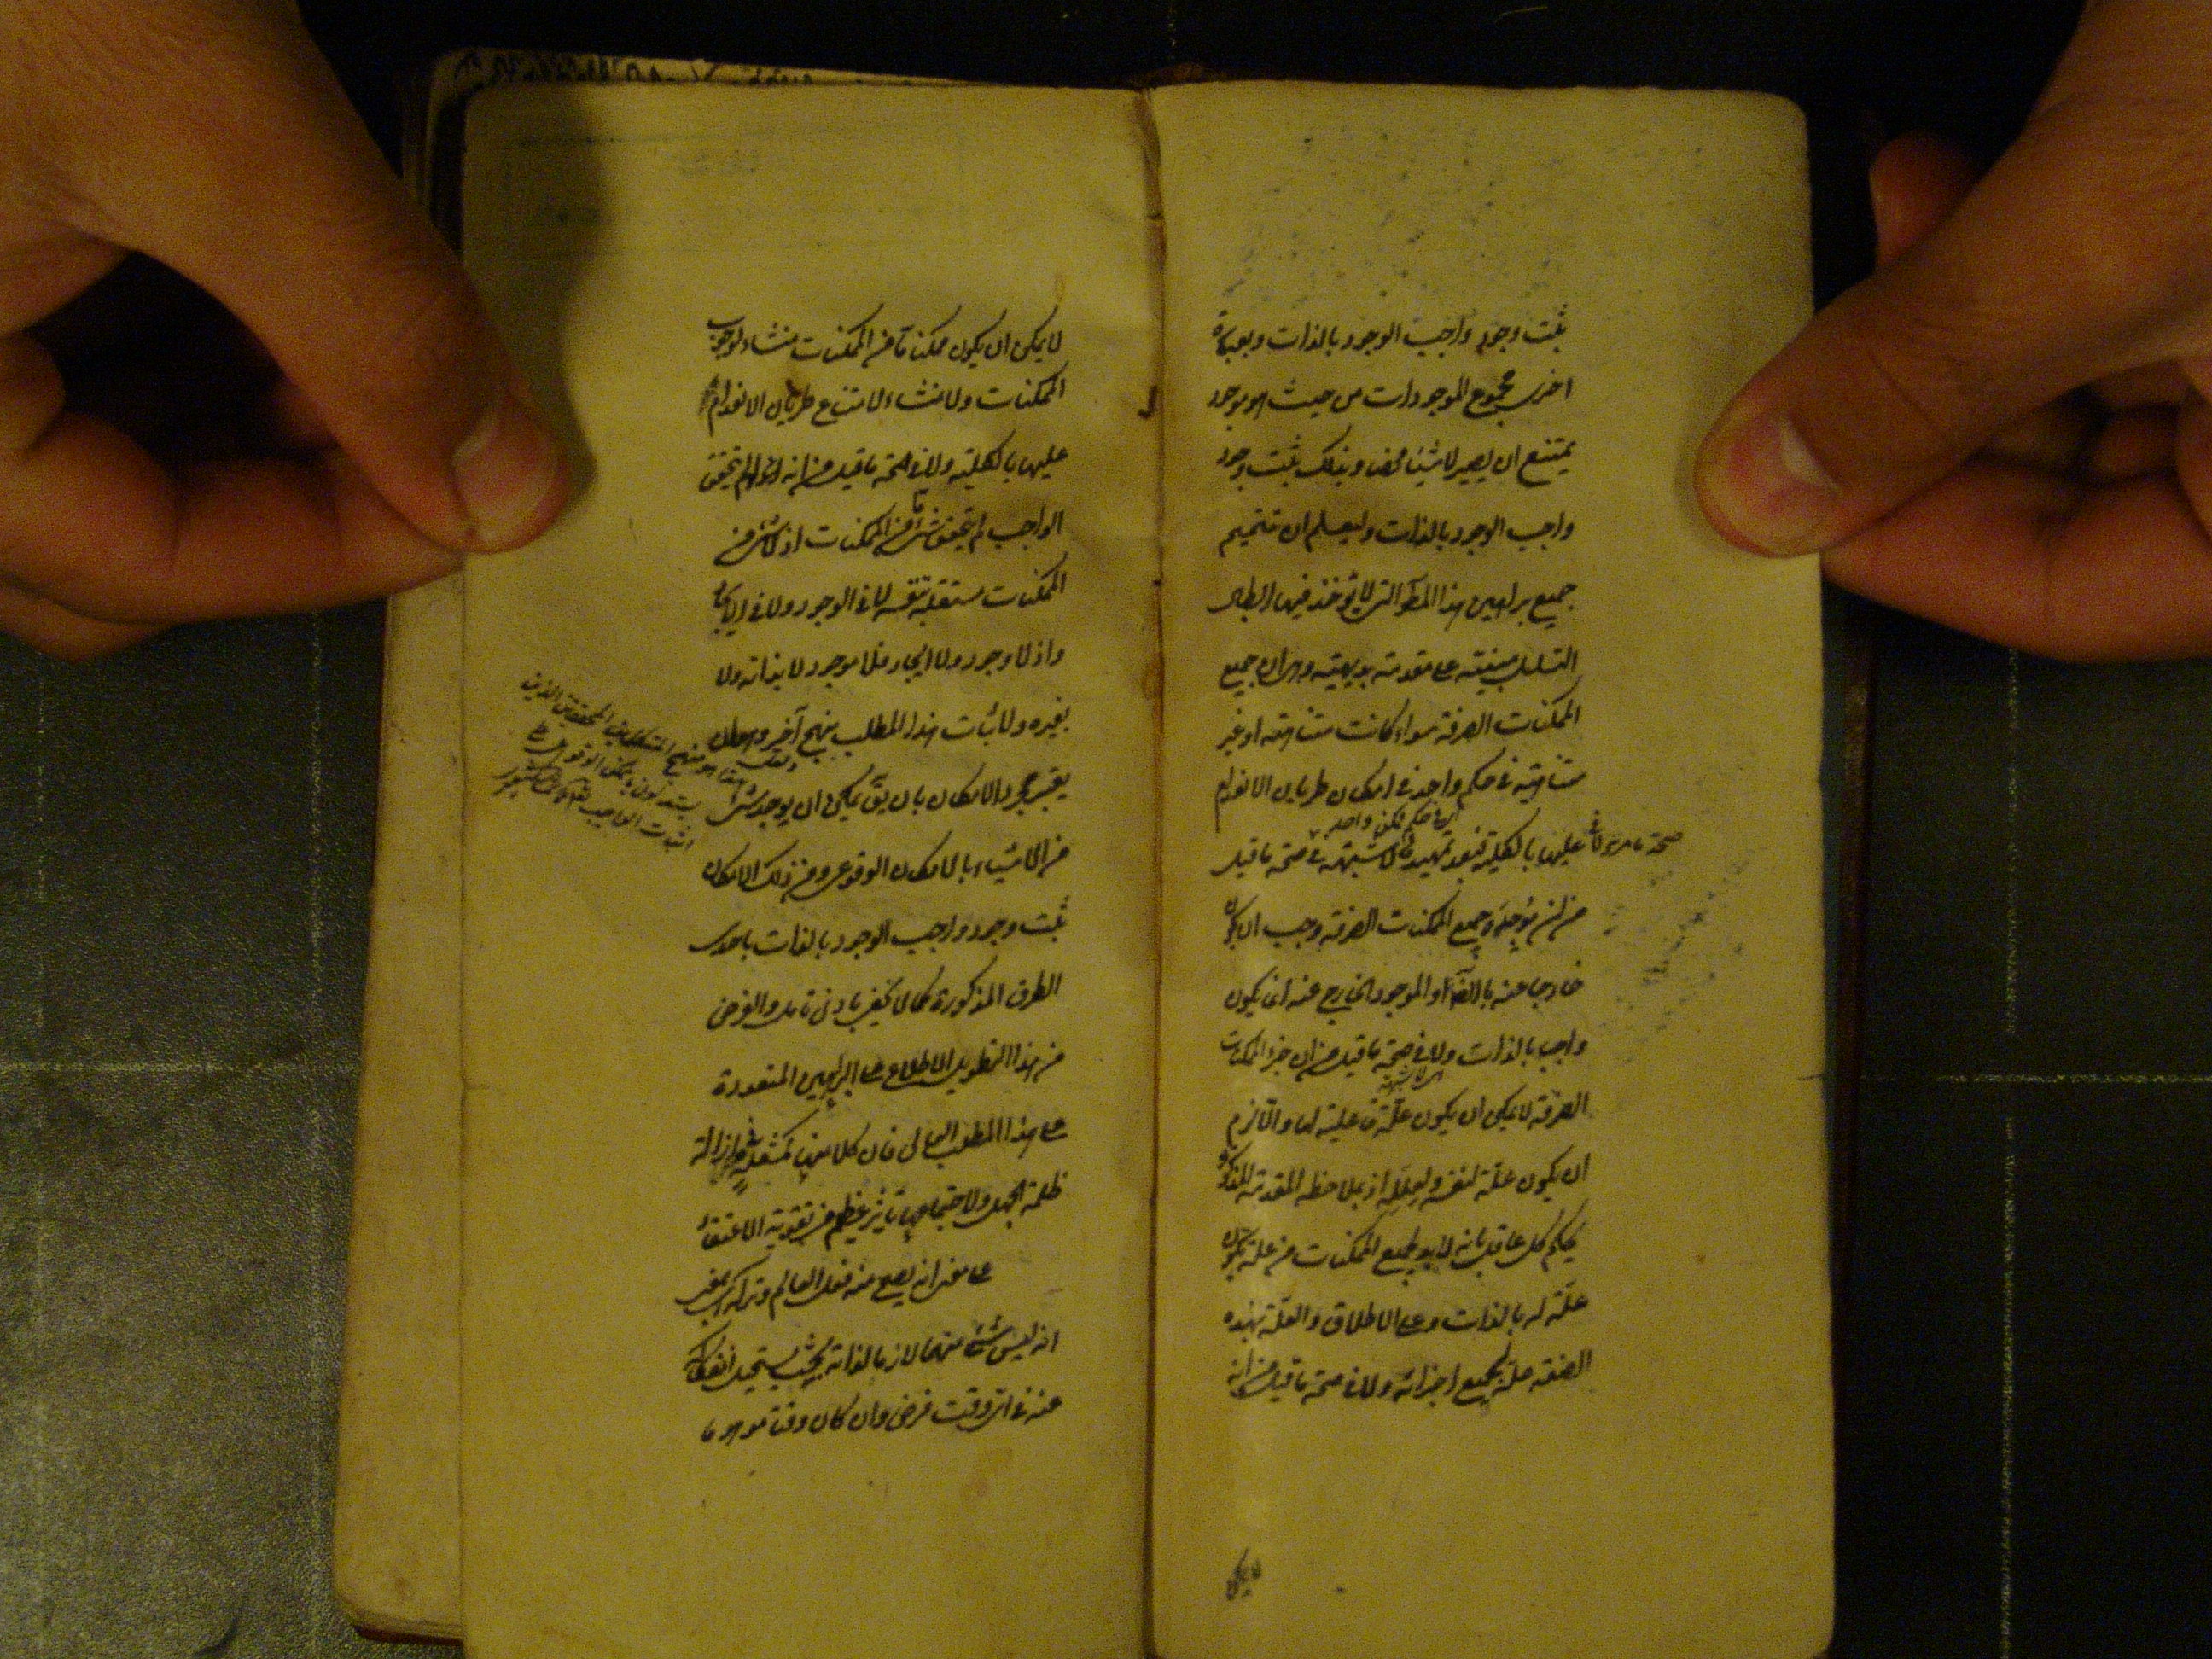 ثبت وجود واجب الوجود بالذات وبعبارة
اخرى مجموع الموجودات من حيث هو موجود
يمتنع ان يصير لا شيئا محضا وبذلك ثبت وجود
واجب الوجود بالذات وليعلم ان تتميم
جميع براهين هذا المط التى لا يؤخذ فيها ابطال
التسلسل مبنية على مقدمة بديهية وهى ان جميع
الممكنات الصرفة سواء كانت متناهية او غير
متناهية فى حكم واحد فى امكان طريان الانعدام
اى فى حكم ممكن واحد
عليها بالكلية فبعد تمهيد لا شبهة فى صحة ما قيل
من ان موجد جميع الممكنات الصرفة وجب ان يكون
خارجا عنه بالضرورة والموجود الخارج عنه انما يكون
واجبا بالذات ولا فى صحة ما قيل من ان جزء الممكنات
اى لا شبهة
الصرفة لا يمكن ان يكون علة فاعلية لها والا لزم
ان يكون علة لنفسه ولعلله اذ بملاحظة المقدمة المذكورة
يحكم كل عاقل بانه لا بد لجميع الممكنات من علة يكون
علة له بالذات وعلى الاطلاق والعلة بهذه
الصفة علة لجميع اجزائه ولا فى صحة ما قيل من انه
لا يمكن
لا يمكن ان يكون ممكن ما من الممكنات منشاء لوجوب
الممكنات ولا منشاء لامتناع طريان الانعدام
عليها بالكلية ولا فى صحة ما قيل من انه لو لم يتحقق
الواجب لم يتحقق شئ ما من الممكنات اذ لا شئ من
الممكنات مستقلة بنفسه لا فى الوجود ولا فى الايجاد
واذ لا وجود ولا ايجاد فلا موجود لا بذاته ولا
بغيره ولاثبات هذا المطلب منهج آخر وهو ان
يعتبر مجرد الامكان بان يق يمكن ان يوجد شئ
من الاشياء بالامكان الوقوعى ومن ذلك الامكان
ثبت وجود واجب الوجود بالذات باحدى
الطرق المذكورة كما لا يخفى بادنى تامل والغرض
من هذا التطويل الاطلاع على البراهين المتعددة
على هذا المطلب العالى فان كلا منها كمشعلة فى ازالة
ظلمة الجهل ولاجتماعها تاثير عظيم فى تقوية الاعتقاد
على معنى انه يصح منه فعل العالم وتركه بمعنى
انه ليس شئ منهما لازما لذاته بحيث يستحيل انفكاكه
عنه فى اى وقت فرض وان كان وقتا موهوما